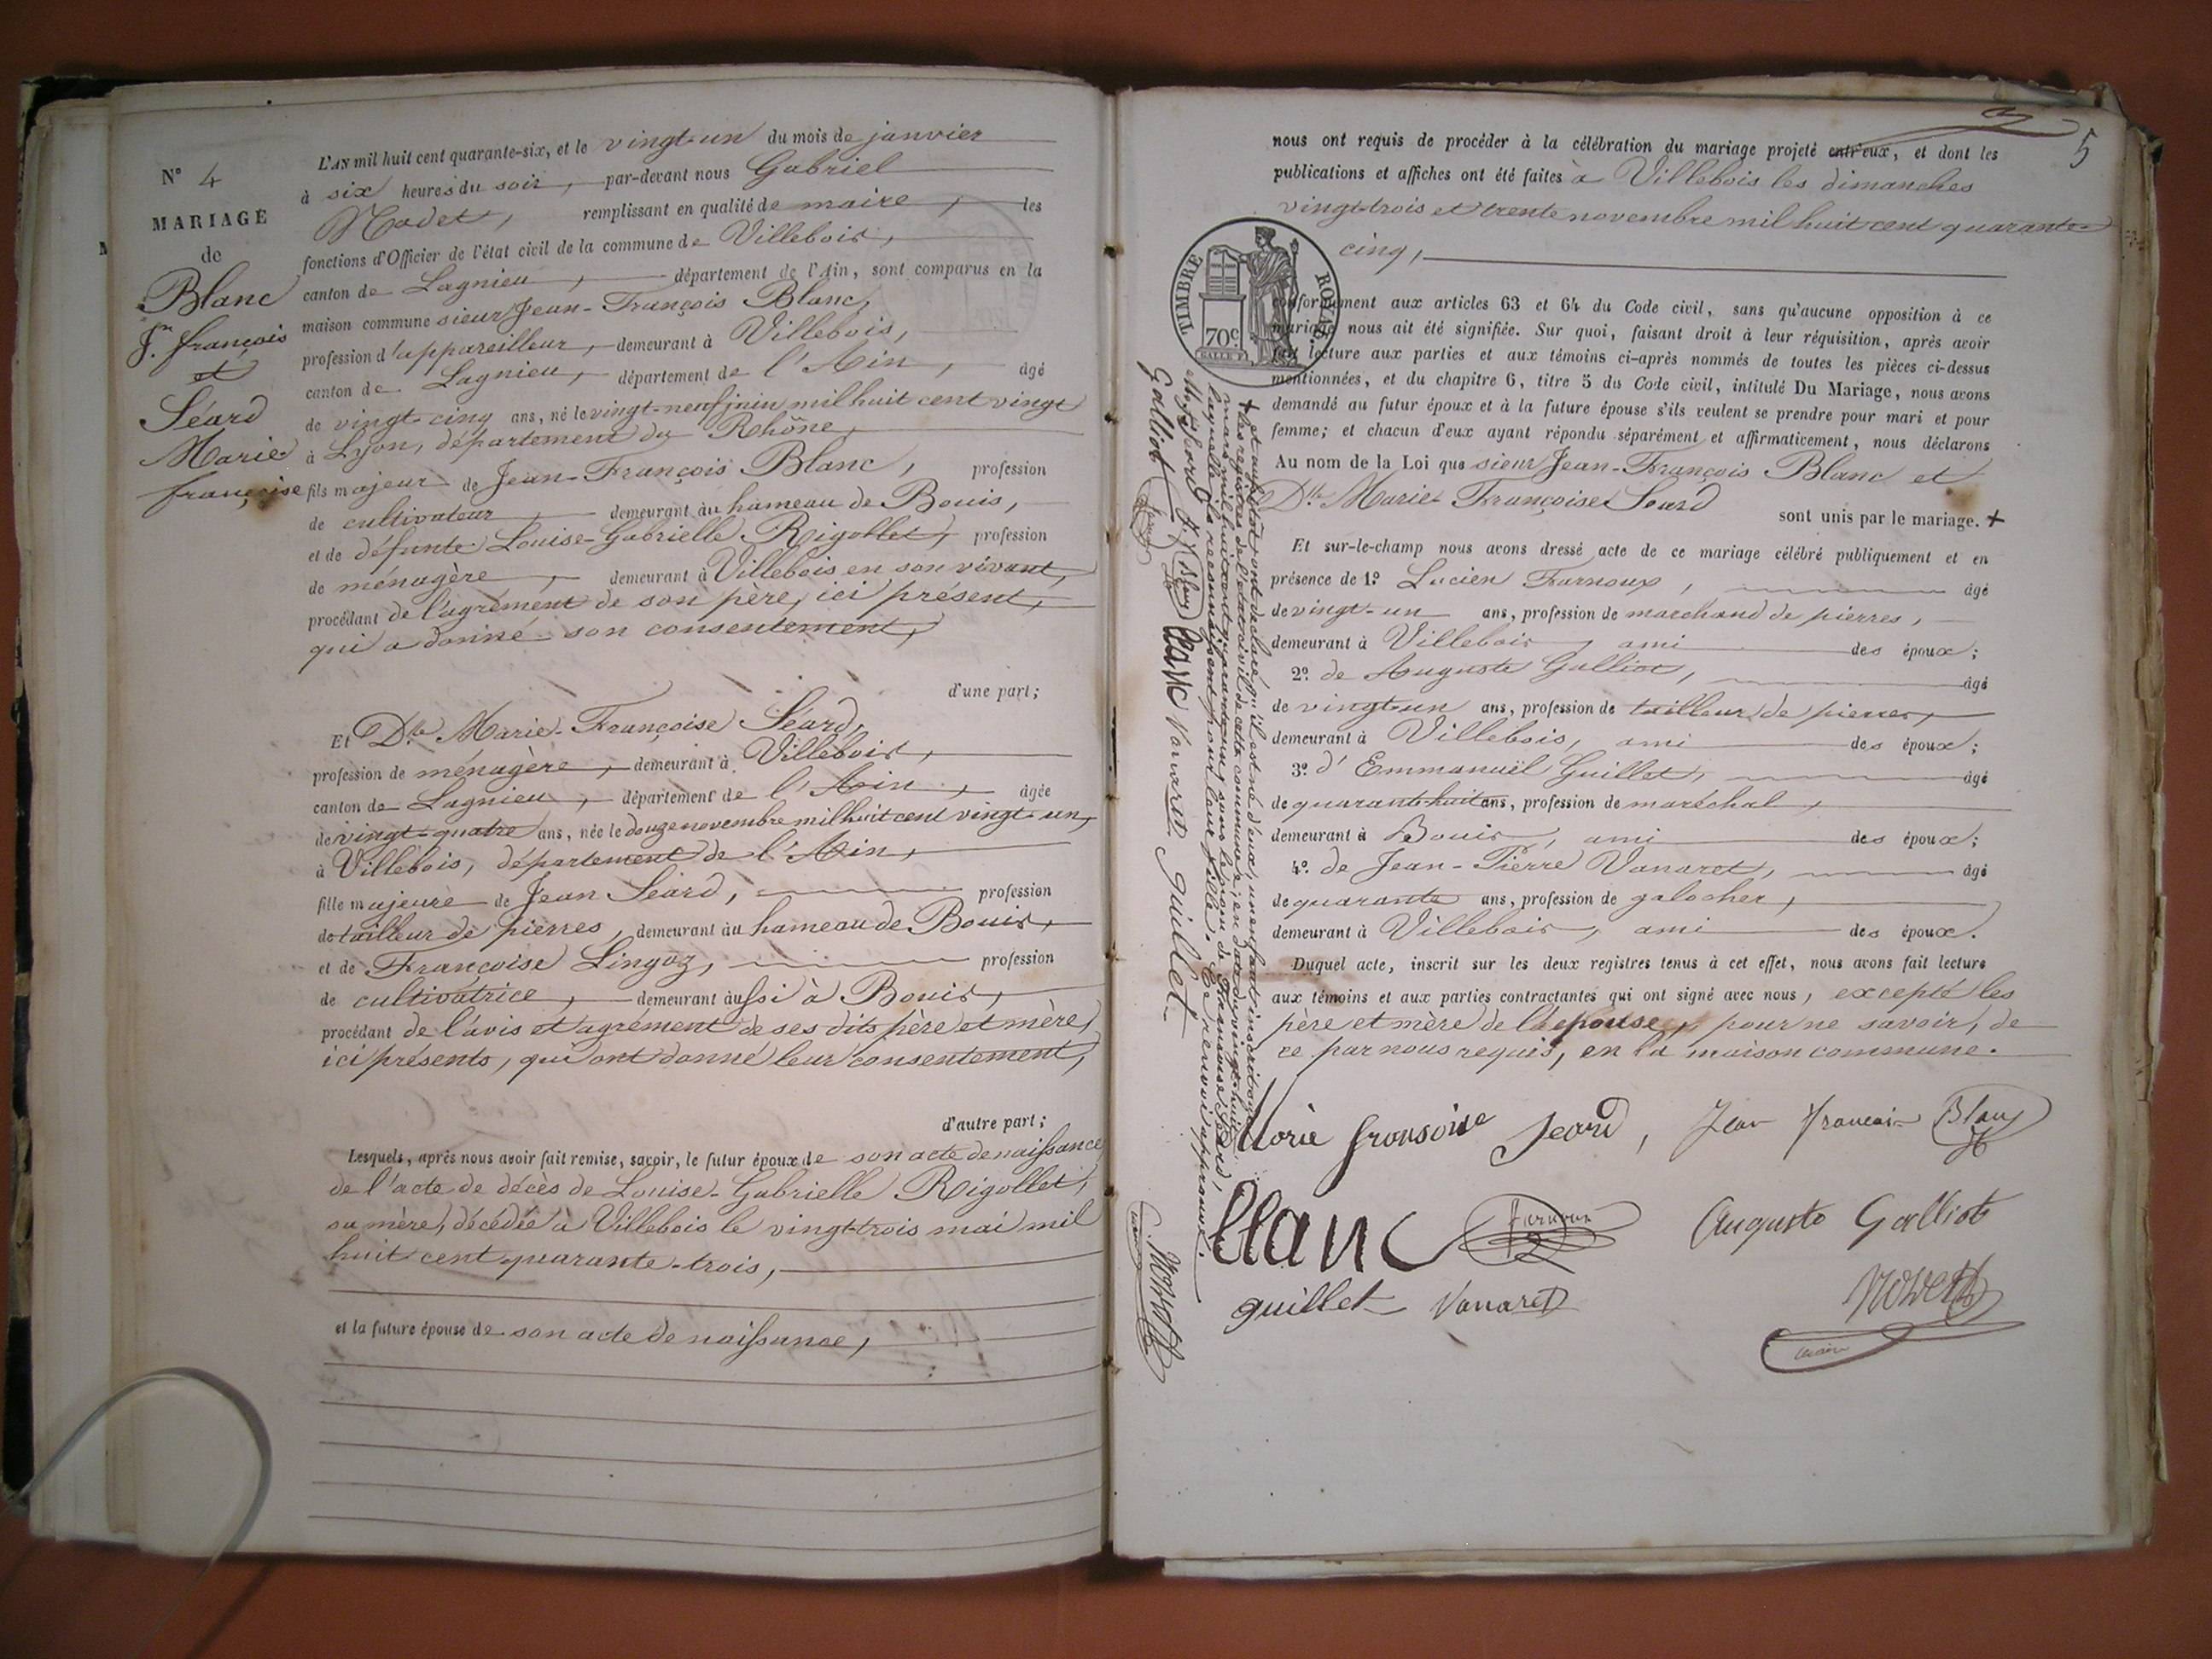 N° 4
MARIAGE
de
Blanc
Jn. françois
et
Séard
Marie
françoise
L'AN mil huit cent quarante-six, et le vingt-un du mois de janvier
à six heures du soir, par-devant nous Gabriel
Nodet, remplissant en qualité de maire, les
fonctions d'Officier de l'état civil de la commune de Villebois,
canton de Lagnieu, département de l'Ain, sont comparus en la
maison commune sieur Jean-François Blanc,
profession d'appareilleur, demeurant à Villebois,
canton de Lagnieu, département de l'Ain, âgé
de vingt-cinq ans, né le vingt-neuf juin mil huit cent vingt
à Lyon, département du Rhône,
fils majeur de Jean-François Blanc, profession
de cultivateur, demeurant au hameau de Bouis,
et de défunte Louise-Gabrielle Rigollet, profession
de ménagère, demeurant à Villebois en son vivant,
procédant de l'agrément de son père, ici présent,
qui a donné son consentement,
d'une part;
Et Dlle Marie-Françoise Séard,
profession de ménagère, demeurant à Villebois,
canton de Lagnieu, département de l'Ain, âgée
de vingt-quatre ans, née le douze novembre mil huit cent vingt-un,
à Villebois, département de l'Ain,
fille majeure de Jean Séard, profession
de tailleur de pierres, demeurant au hameau de Bouis,
et de Françoise Lingoz, profession
de cultivatrice, demeurant aussi à Bouis,
procédant de l'avis et agrément de ses dits père et mère,
ici présents, qui ont donné leur consentement,
d'autre part;
Lesquels, après nous avoir fait remise, savoir, le futur époux de son acte de naissance
de l'acte de décès de Louise-Gabrielle Rigollet,
sa mère, décédée à Villebois le vingt-trois mai mil
huit cent quarante-trois,
et la future épouse de son acte de naissance,
5
nous ont requis de procéder à la célébration du mariage projeté entr'eux, et dont les
publications et affiches ont été faites à Villebois les dimanches
vingt-trois et trente novembre mil huit cent quarante-
cinq,
TIMBRE ROYAL
70c
conformément aux articles 63 et 64 du Code civil, sans qu'aucune opposition à ce
mariage nous ait été signifiée. Sur quoi, faisant droit à leur réquisition, après avoir
fait lecture aux parties et aux témoins ci-après nommés de toutes les pièces ci-dessus
mentionnées, et du chapitre 6, titre 5 du Code civil, intitulé Du Mariage, nous avons
demandé au futur époux et à la future épouse s'ils veulent se prendre pour mari et pour
femme; et chacun d'eux ayant répondu séparément et affirmativement, nous déclarons
Au nom de la Loi que sieur Jean-François Blanc et
Dlle Marie Françoise Seard
sont unis par le mariage. +
Et sur-le-champ nous avons dressé acte de ce mariage célébré publiquement et en
présence de 1° Lucien Furnoux, âgé
de vingt-un ans, profession de marchand de pierres,
demeurant à Villebois, ami des époux;
2° de Auguste Galliot, âgé
de vingt-un ans, profession de tailleur de pierres,
demeurant à Villebois, ami des époux;
3° d'Emmanuël Guillet, âgé
de quarante-huit ans, profession de maréchal,
demeurant à Bouis, ami des époux;
4° de Jean-Pierre Vanaret, âgé
de quarante ans, profession de galocher,
demeurant à Villebois, ami des époux.
Duquel acte, inscrit sur les deux registres tenus à cet effet, nous avons fait lecture
aux témoins et aux parties contractantes qui ont signé avec nous, excepté les
père et mère de l'épouse, pour ne savoir, de
ce par nous requis, en la maison commune.
Marie fronsoise Seard, Jean francois Blanc
blanc furnoux Auguste Galliot
guillet Vanaret Nodet
maire
+ et aussitôt ont déclaré qu'il est né d'eux, un enfant inscrit sur
les registres de l'état civil de cette commune, en date du vingt-huit
mars mil huit cent quarante-cinq sous le nom de Françoise Séard,
laquelle ils reconnaissent pour leur fille. Ce renvoi approuvé.
M. f. Seard J. f. Blanc blanc Vanaret guillet
Galliot furnoux Nodet